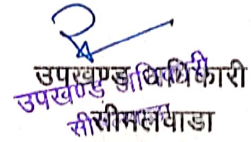 उपखण्ड अधिकारी
उपखण्ड अधिकारी
सीमलवाडा